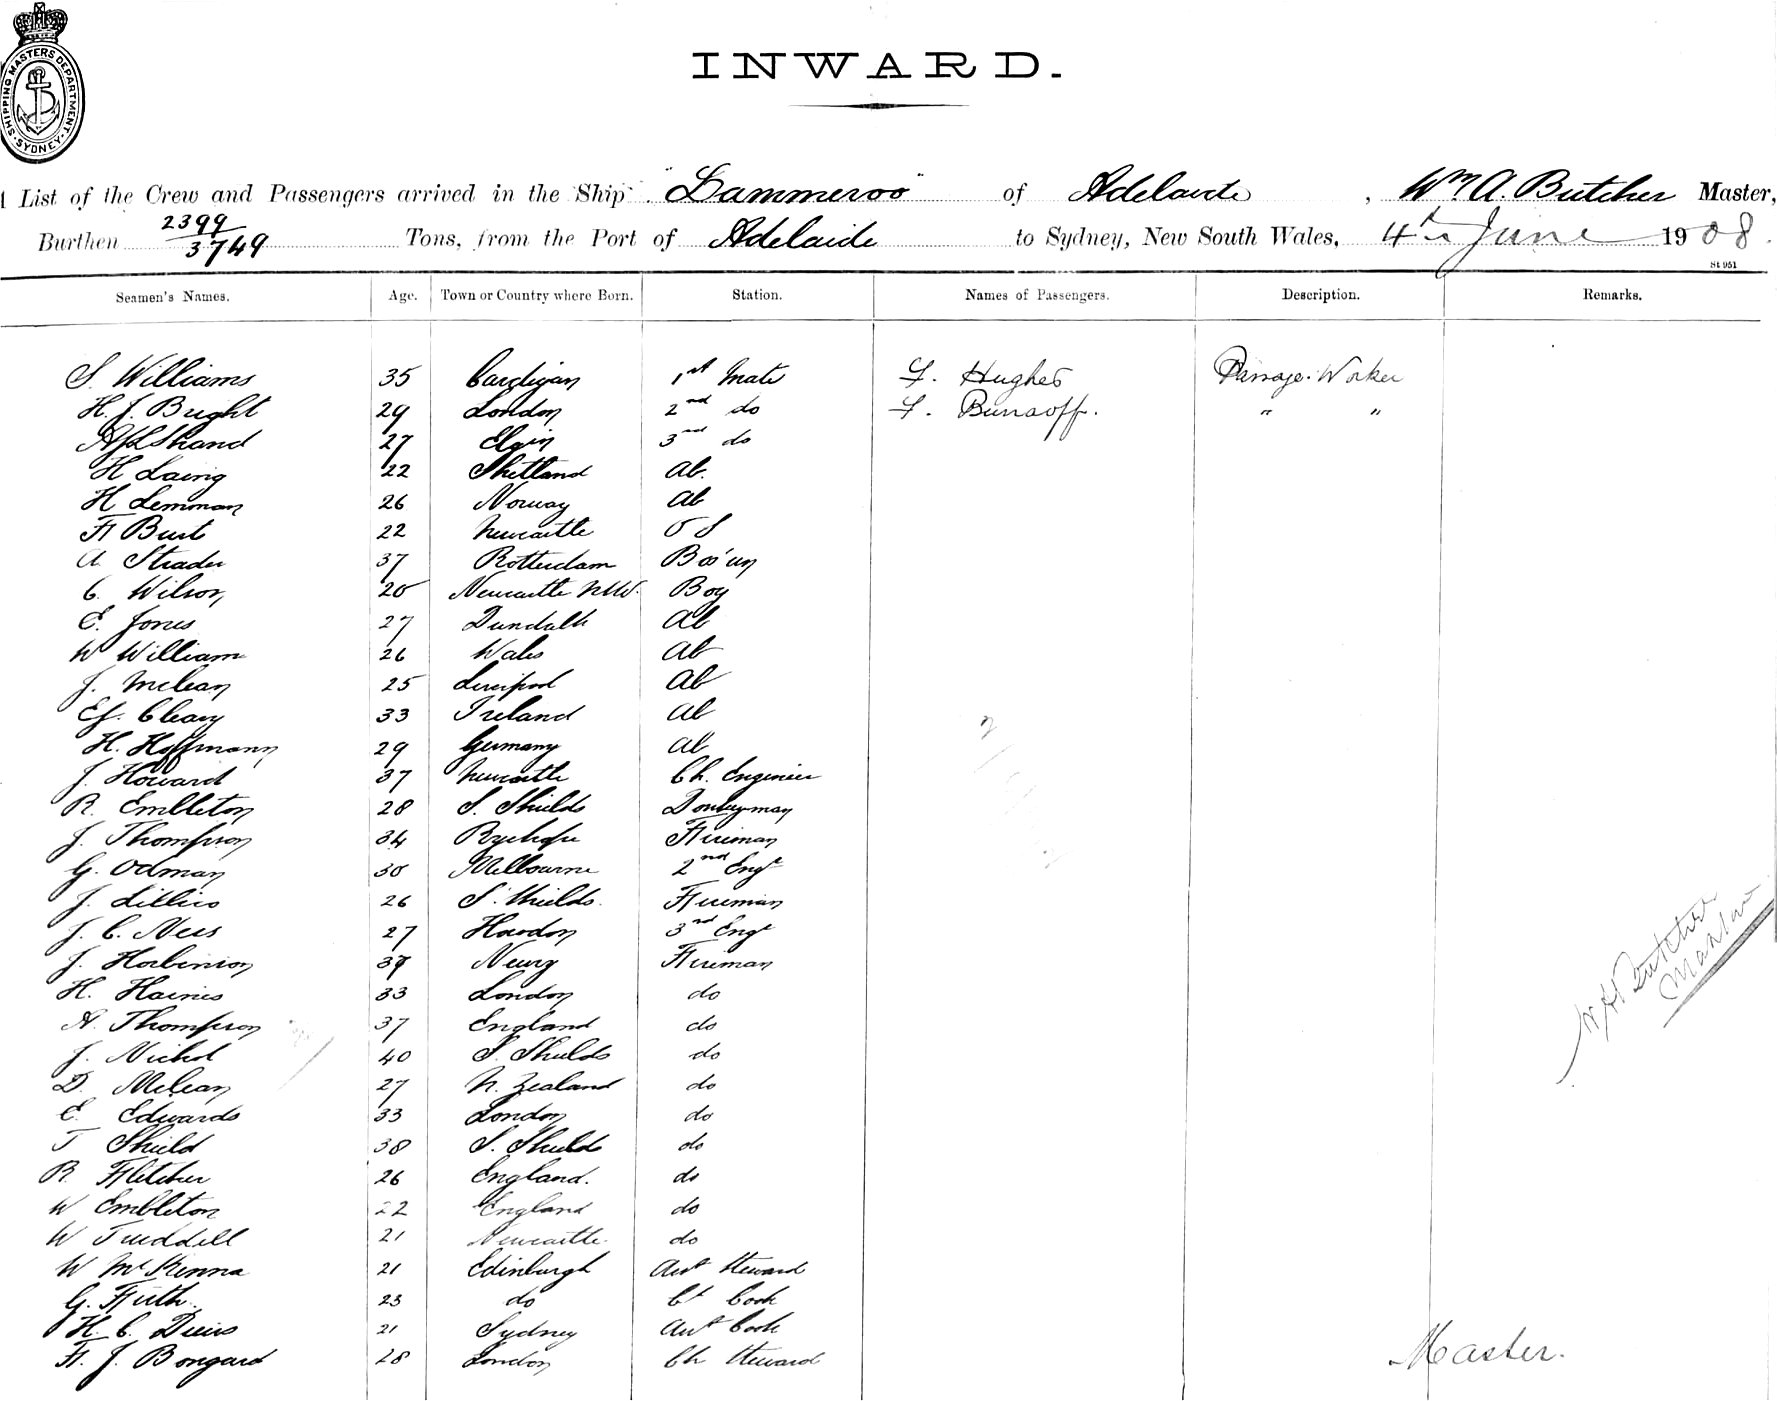 SHIPPING MASTERS DEPARTMENT. SYDNEY
INWARD.
A List of the Crew and Passengers arrived in the Ship "Dammeroo" of Adelaide, Wm A. Butcher Master,
Burthen 2399/3749 Tons, from the Port of Adelaide to Sydney, New South Wales, 4th June 1908.
St 951
Seamen's Names. Age. Town or Country where Born. Station. Names of Passengers. Description. Remarks.
S. Williams 35 Cardigan 1st Mate F. Hughes Passage Worker
H. J. Bright 29 London 2nd do F. " "
Shand 27 Elgin 3rd do
H Laing 22 Shetland Ab.
H Lemman 26 Norway Ab
F Burt 22 Newcastle O S
A. Strader 37 Rotterdam Bos'un
C. Wilson 20 Newcastle NSW. Boy
E. Jones 27 Dundalk Ab
W William 26 Wales Ab
J. McLean 25 Liverpool Ab
EJ. Cleary 33 Ireland Ab
H. Hoffmann 29 Germany Ab
J. Howard 37 Newcastle Ch. Engineer
R. Embleton 28 S. Shields Donkeyman
J. Thompson 34 Ryehope Fireman
G. Odman 30 Melbourne 2nd Engr
J. Lillico 26 S. Shields. Fireman
J. C. Ness 27 Howdon 3rd Engr
J. Horbinson 37 Newry Fireman
H. Haines 33 London do
A. Thompson 37 England do
J. Nichol 40 S. Shields do
D. McLean 27 N. Zealand do
E. Edwards 33 London do
T Shield 38 S. Shields do
R. Fletcher 26 England. do
W Embleton 22 England do
W Tweddell 21 Newcastle. do
W McKenna 21 Edinburgh Asst Steward
G. Firth 23 do Ch Cook
H. C. 21 Sydney Asst Cook
F. J. Bongard 28 London Ch Steward
W A Butcher
Master
Master.